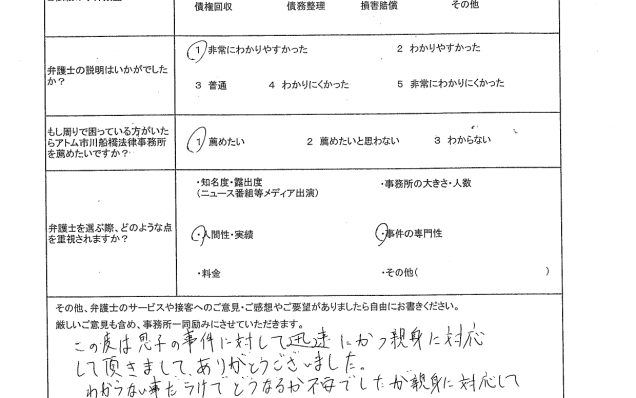 債権回収 債務整理 損害賠償 その他
弁護士の説明はいかがでしたか？
1 非常にわかりやすかった 2 わかりやすかった
3 普通 4 わかりにくかった 5 非常にわかりにくかった
もし周りで困っている方がいたらアトム市川船橋法律事務所を薦めたいですか？
1 薦めたい 2 薦めたいと思わない 3 わからない
弁護士を選ぶ際、どのような点を重視されますか？
・知名度・露出度 ・事務所の大きさ・人数
（ニュース番組等メディア出演）
・人間性・実績 ・事件の専門性
・料金 ・その他( )
その他、弁護士のサービスや接客へのご意見・ご感想やご要望がありましたら自由にお書きください。
厳しいご意見も含め、事務所一同励みにさせていただきます。
この度は息子の事件に対して迅速にかつ親身に対応
して頂きまして、ありがとうございました。
わからない事だらけでどうなるか不安でしたが親身に対応して